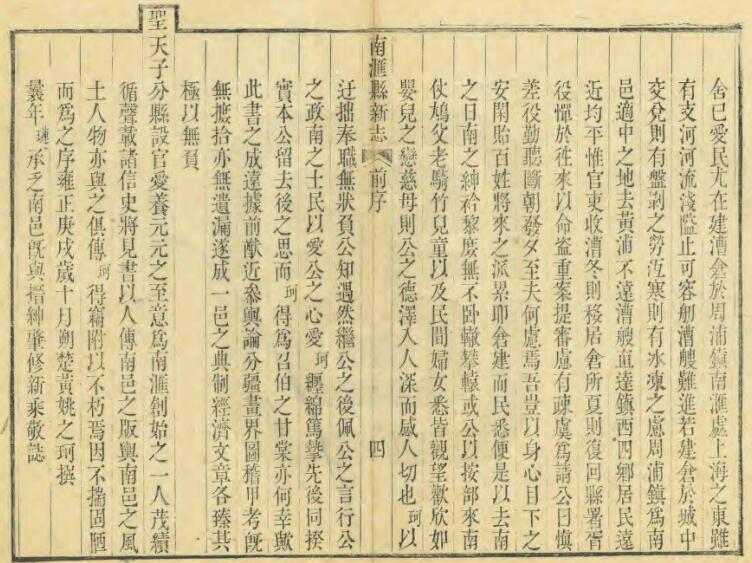 舍己愛民尤在建漕倉於周浦鎮南滙處上海之東雖
有支河河流淺隘止可容舠漕艘難進若建倉於城中
交兌則有盤剝之勞沍寒則有氷凍之慮周浦鎮爲南
邑適中之地去黃浦不遠漕艘直達鎮西四鄉居民遠
近均平惟官吏收漕冬則移居倉所夏則復回縣署胥
役憚於徃來以命盗重案提審慮有疎虞爲請公曰愼
差役勤聽斷朝發夕至夫何慮焉吾豈以身心目下之
安閑貽百姓將來之派累耶倉建而民悉便是以去南
之日南之紳袷黎庶無不卧轍攀轅或公以按部來南
仗鳩父老騎竹兒童以及民間婦女悉皆觀望歡欣如
嬰兒之戀慈母則公之德澤人人深而感人切也珂以
南滙縣新志 前序 四
迂拙奉職無狀負公知遇然繼公之後佩公之言行公
之政南之士民以愛公之心愛珂纒綿篤摯先後同揆
實本公留去後之思而珂得爲召伯之甘棠亦何幸歟
此書之成遠據前猷近參輿論分疆畫界圖稽甲考旣
無摭拾亦無遺漏遂成一邑之典制經濟文章各臻其
極以無負
聖天子分縣設官愛養元元之至意爲南滙創始之一人茂績
循聲載諸信史將見書以人傳南邑之版與南邑之風
土人物亦與之俱傳珂得竊附以不朽焉因不揣固陋
而爲之序雍正庚戌歲十月朔楚黃姚之珂撰
曩年璉承乏南邑旣與搢紳肇修新乘敬誌